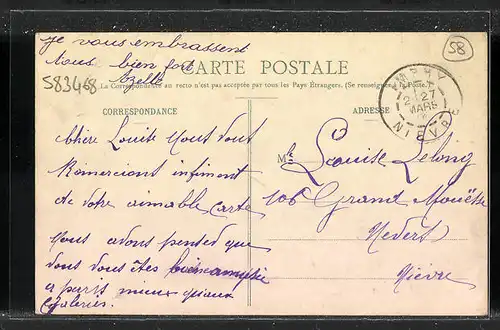 je vous embrassent
tous bien fort
58
583468
CARTE POSTALE
La Correspondance au recto n'est pas acceptée par tous les Pays Étrangers. (Se renseigner à la Poste.)
CORRESPONDANCE
ADRESSE
IMPHY
27
MARS
NIÈVRE
chère Louise Nous vous
Remercions infiment
de votre aimable carte
Nous avons pensed que
vous vous êtes
a paris mieux quaux
M
Louise Lelong
106 Grand Mouësse
Nevers
Nièvre